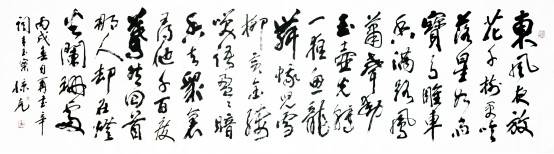 東風夜放
花千樹更吹
落星如雨
寶馬雕車
香滿路鳳
簫聲動
玉壺光轉
一夜魚龍
舞蛾兒雪
柳黃金縷
笑語盈盈暗
香去眾裏
尋他千百度
驀然回首
那人卻在燈
火闌珊處
丙戌春日書辛
詞青玉案